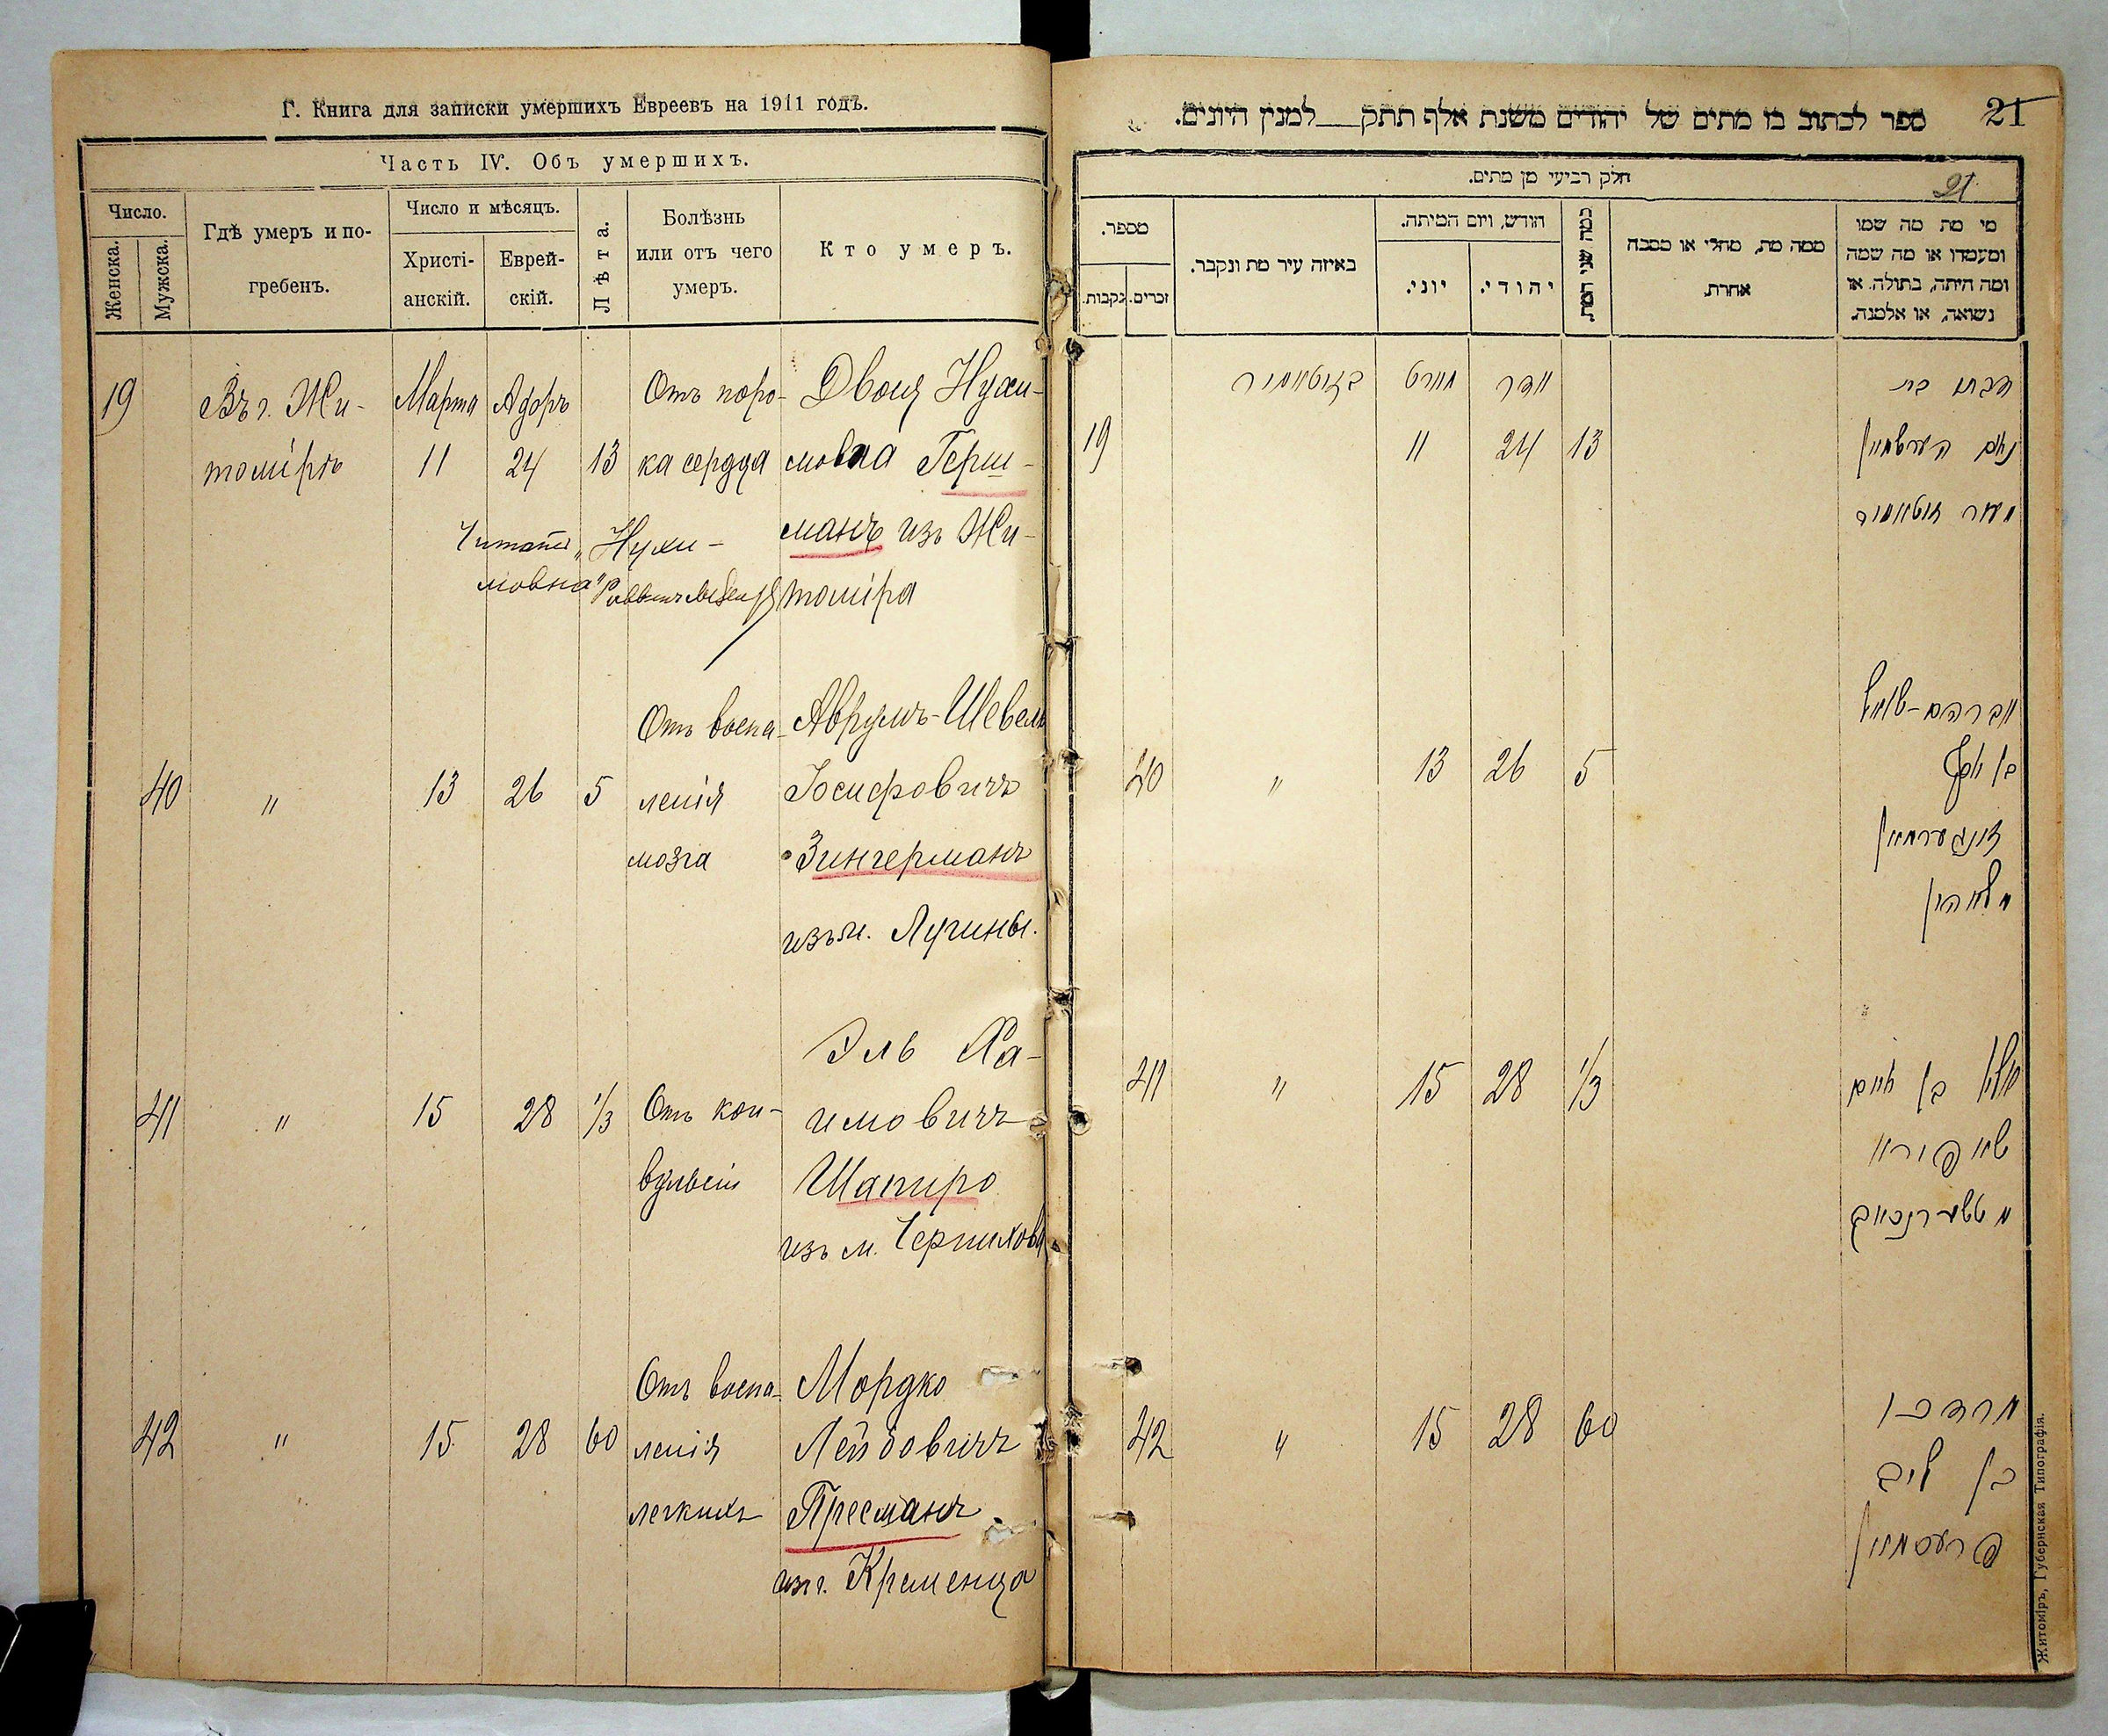 Г. Книга для записки умершихъ Евреевъ на 1911 годъ.
Часть IV. Объ умершихъ.
Число.
Женска.
Мужска.
Гдѣ умеръ и по-
гребенъ.
Число и мѣсяцъ.
Христі-
анскій.
Еврей-
скій.
Лѣта.
Болѣзнь
или отъ чего
умеръ.
Кто умеръ.
19
Въ г. Жи-
томірѣ
Марта
11
Адоръ
24
13
Отъ поро-
ка сердца
Двойя Нухи-
мовна Герш-
манъ изъ Жи-
томіра
Читать „Нухи-
мовна“
40
"
13
26
5
Отъ воспа-
ленія
мозга
Аврумъ-Шевель
Іосифовичъ
Зингерманъ
изъ м. Лугины.
41
"
15
28
1/3
Отъ кон-
вульсіи
Эль Ха-
имовичъ
Шапиро
изъ м. Черняхова
42
"
15
28
60
Отъ воспа-
ленія
легкихъ
Мордко
Лейбовичъ
Пресманъ
изъ г. Кременца
21
ספר לכתוב בו מתים של יהודים משנת אלף תתק__למנין היונים.
חלק רביעי מן מתים.
21
מספר.
נקבות.
זכרים.
באיזה עיר מת ונקבר.
חודש, ויום המיתה.
יוני.
יהודי.
כמה שני המת
ממה מת, מחלי או מסבה
אחרת
מי מת מה שמו
ומעמדו או מה שמה
ומה היתה, בתולה או
נשואה, או אלמנה.
19
בזיטאמיר
מארט
11
אדר
24
13
בת
נחום הערשמאן
מעיר זיטאמיר
40
"
13
26
5
אברהם-שאול
בן יוסף
זינגערמאן
41
"
15
28
1/3
בן חיים
שאפירא
מטשערנכאוב
42
"
15
28
60
מרדכי
בן ליב
פרעסמאן
Житоміръ, Губернская Типографія.